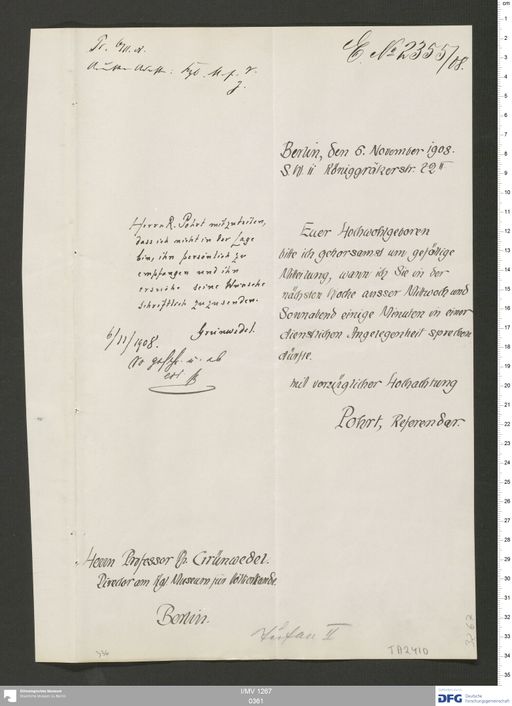 E. No 2355/08.
Berlin, den 6. November 1908.
S.W. 11 Königgrätzerstr. 22 II
Herrn R. Pohrt mitzuteilen,
dass ich nicht in der Lage
bin, ihn persönlich zu
empfangen und ihn
ersuche seine Wünsche
schriftlich zuzusenden.
Grünwedel.
6/11/1908.
Euer Hochwohlgeboren
bitte ich gehorsamst um gefällige
Mitteilung, wann ich Sie in der
nächsten Woche ausser Mittwoch und
Sonnabend einige Minuten in einer
dienstlichen Angelegenheit sprechen
dürfte.
Mit vorzüglicher Hochachtung
Pohrt, Referendar.
Herrn Professor Dr. Grünwedel.
Director am Kgl Museum für Völkerkunde.
Berlin.
Turfan II
TA2410
Ethnologisches Museum
Staatliche Museen zu Berlin
I/MV 1267
0361
DFG Deutsche
Forschungsgemeinschaft